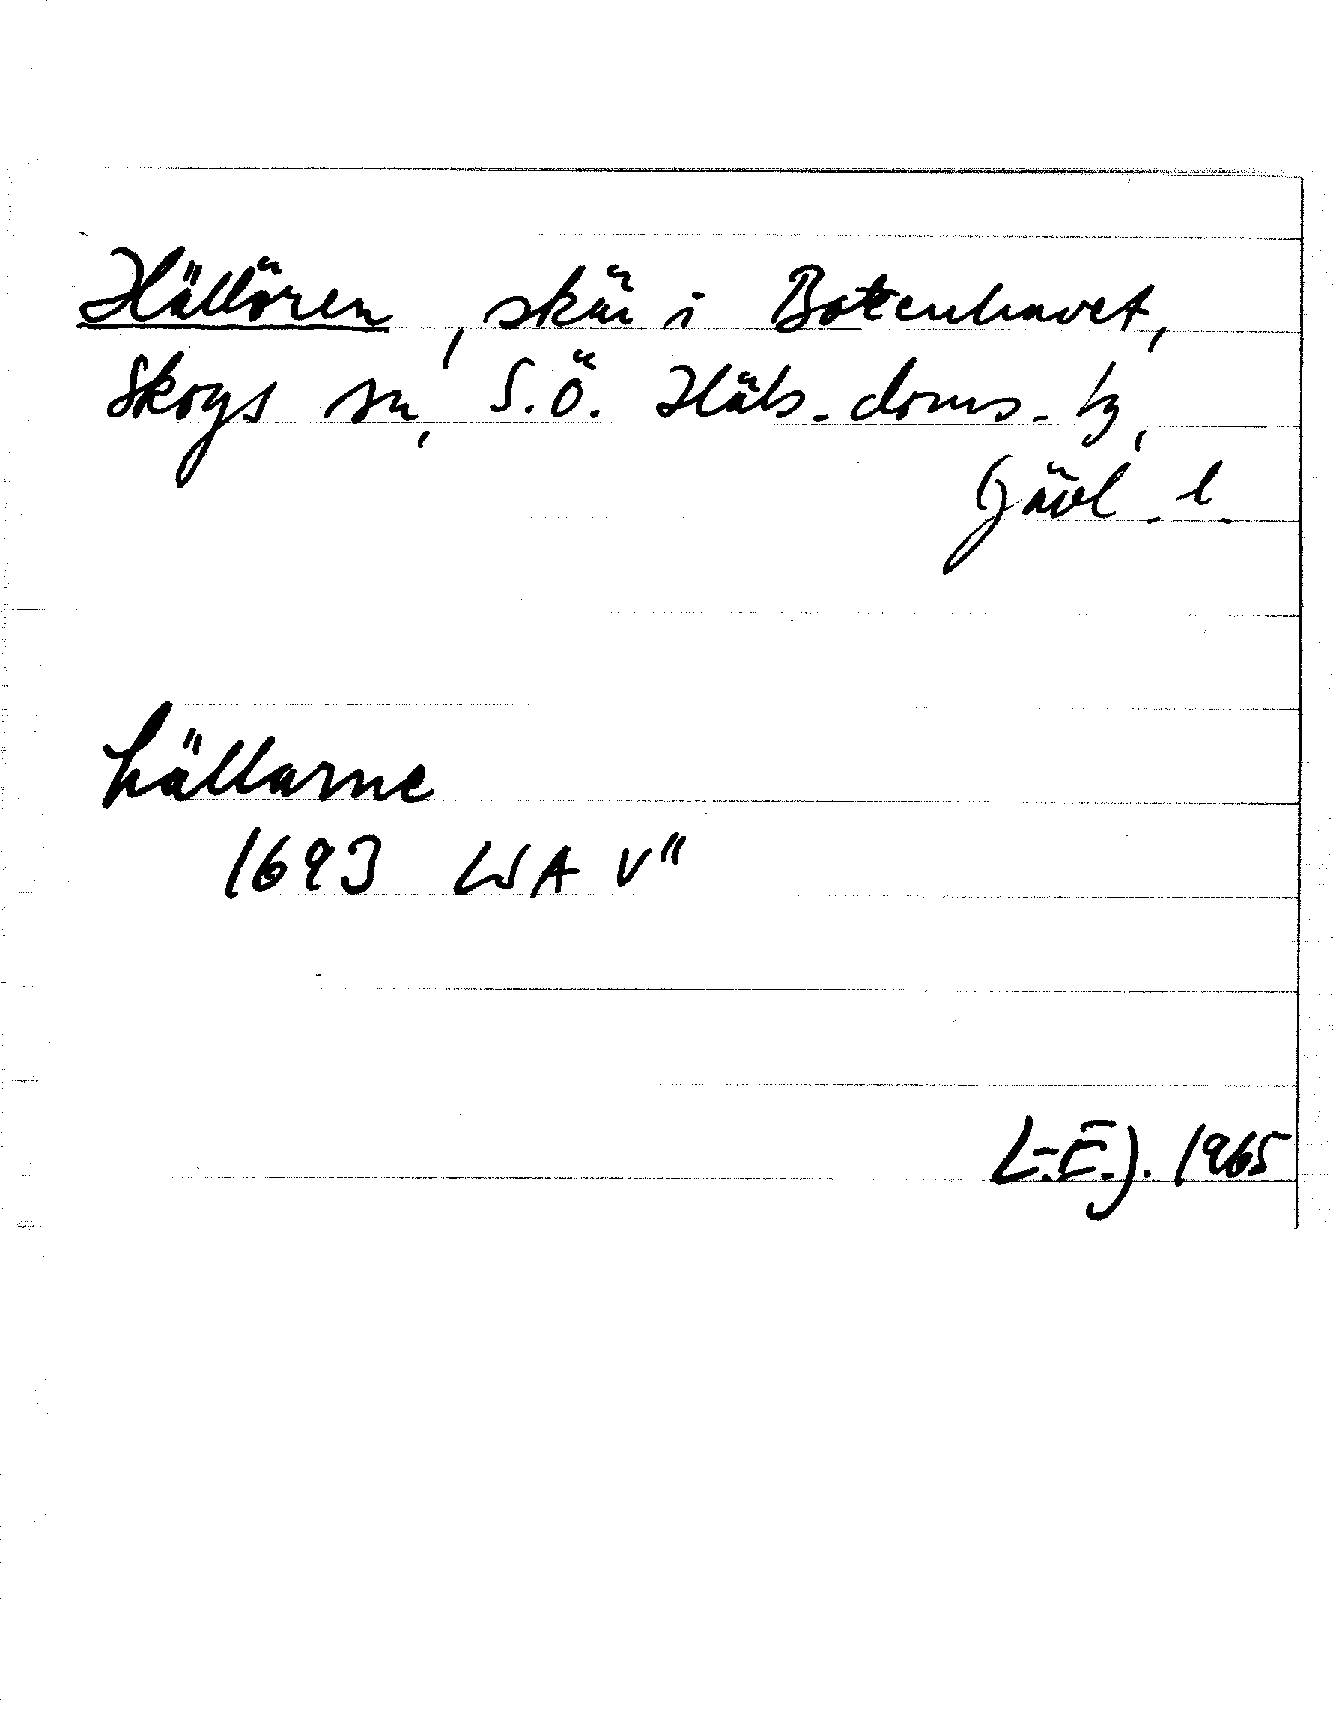 Hällören, skär i Bottenhavet,
Skogs sn, S.Ö. Häls. doms. tg,
Gävl. l.
hällarne
1693 LSA V"
L.-E.J. 1965